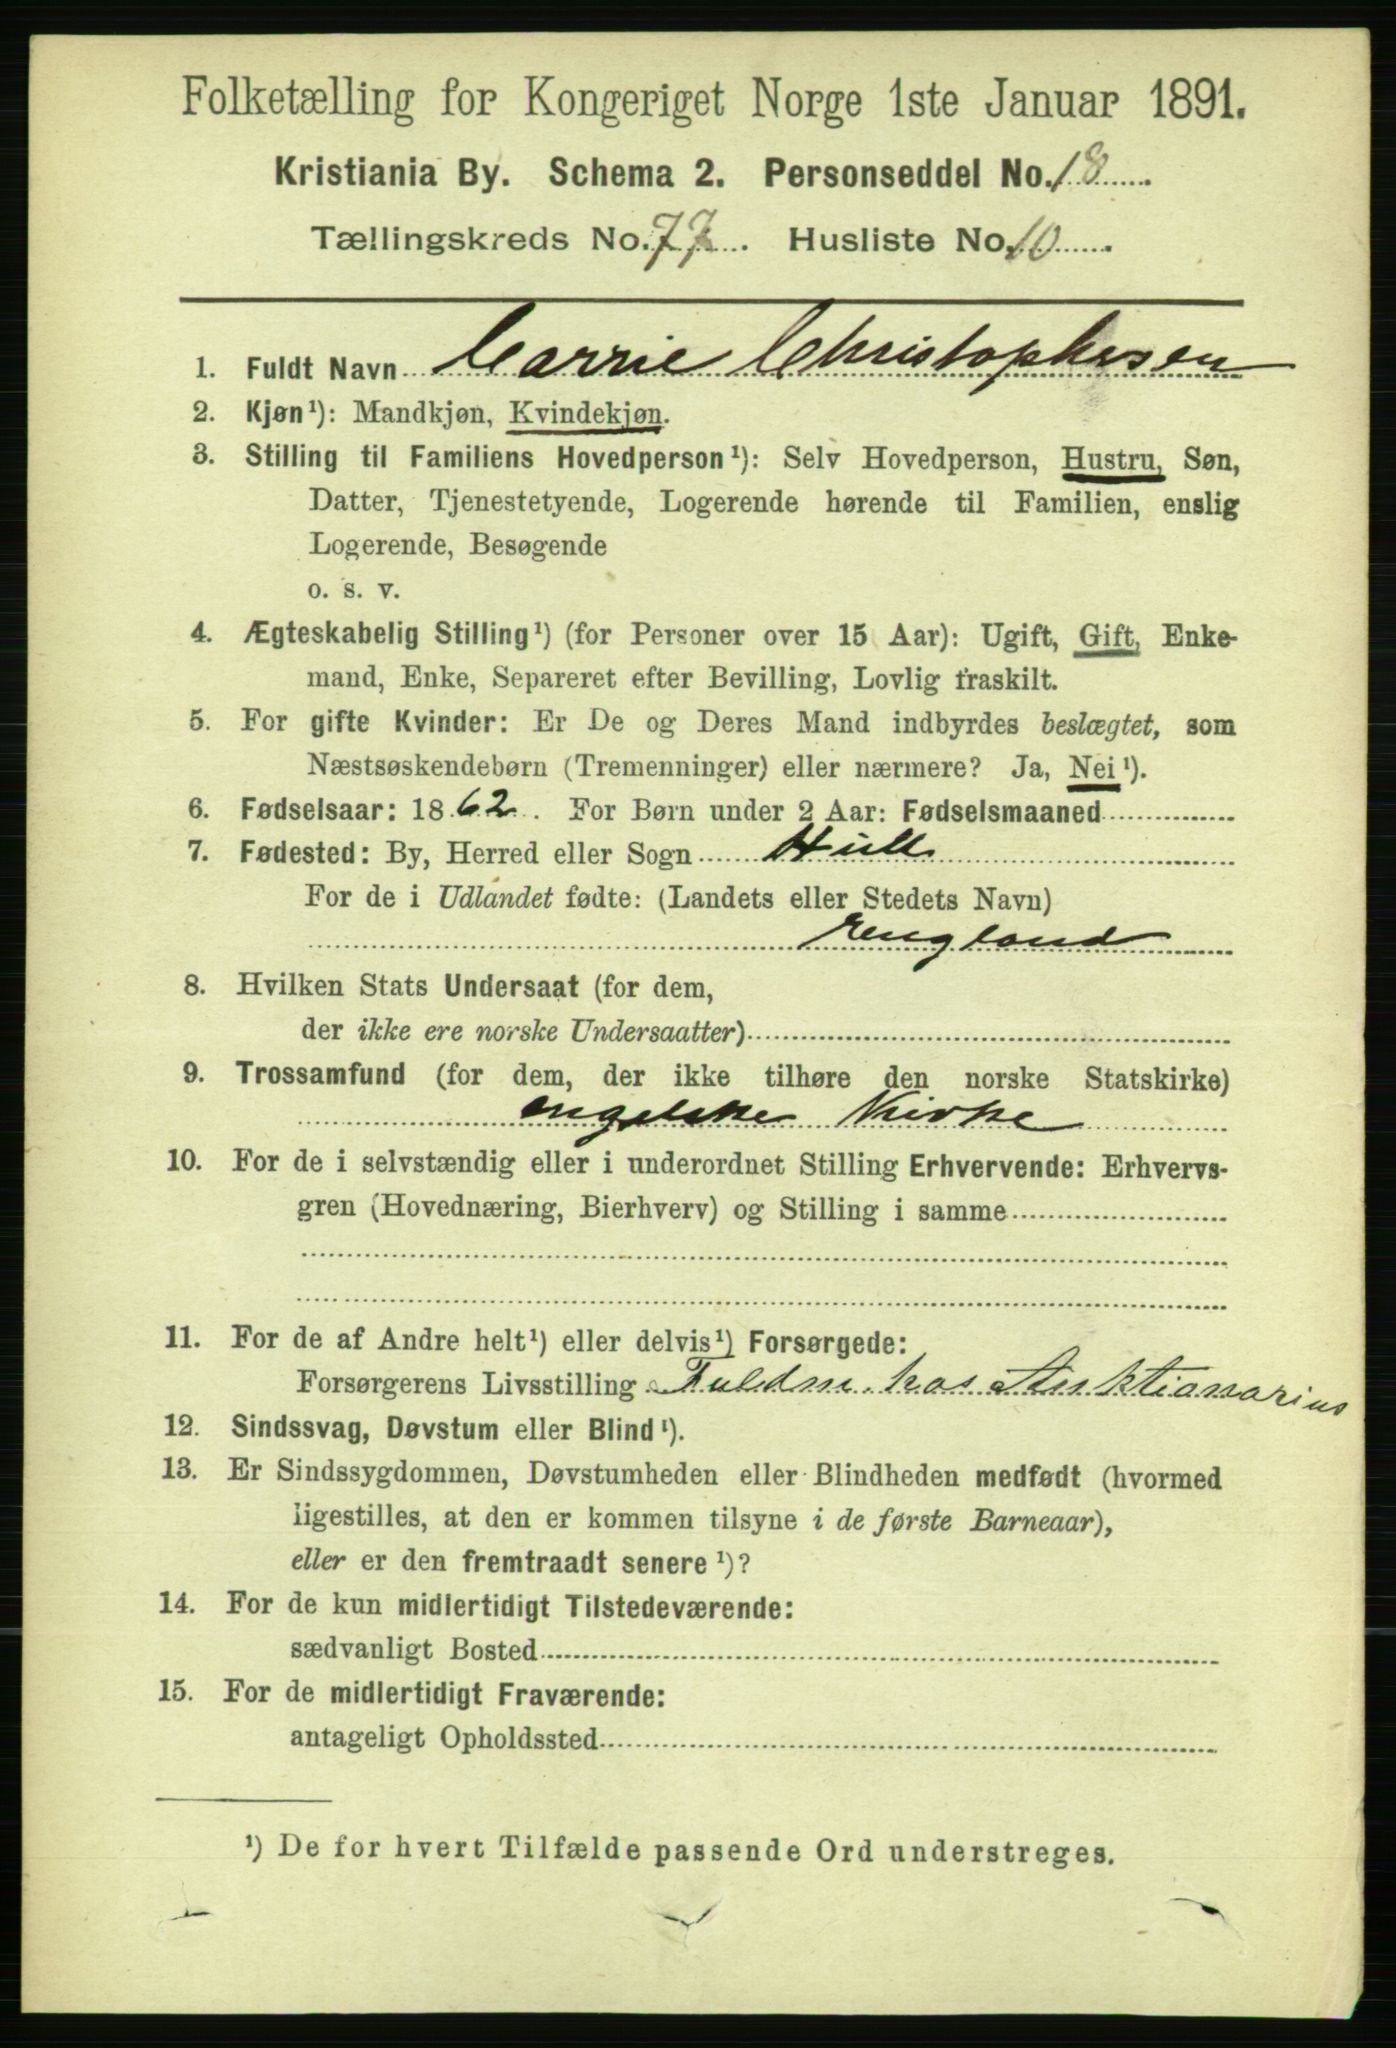 Folketælling for Kongeriget Norge 1ste Januar 1891.
Kristiania By. Schema 2. Personseddel No. 18
Tællingskreds No. 77. Husliste No. 10.
1. Fuldt Navn Carrie Christophersen
2. Kjøn¹): Mandkjøn, Kvindekjøn.
3. Stilling til Familiens Hovedperson¹): Selv Hovedperson, Hustru, Søn,
Datter, Tjenestetyende, Logerende hørende til Familien, enslig
Logerende, Besøgende
o. s. v.
4. Ægteskabelig Stilling¹) (for Personer over 15 Aar): Ugift, Gift, Enke-
mand, Enke, Separeret efter Bevilling, Lovlig fraskilt.
5. For gifte Kvinder: Er De og Deres Mand indbyrdes beslægtet, som
Næstsøskendebørn (Tremenninger) eller nærmere? Ja, Nei¹).
6. Fødselsaar: 1862. For Børn under 2 Aar: Fødselsmaaned
7. Fødested: By, Herred eller Sogn Hull
For de i Udlandet fødte: (Landets eller Stedets Navn)
England
8. Hvilken Stats Undersaat (for dem,
der ikke ere norske Undersaatter)
9. Trossamfund (for dem, der ikke tilhøre den norske Statskirke)
engelske Kirke
10. For de i selvstændig eller i underordnet Stilling Erhvervende: Erhvervs-
gren (Hovednæring, Bierhverv) og Stilling i samme
11. For de af Andre helt¹) eller delvis¹) Forsørgede:
Forsørgerens Livsstilling Fuldm. hos Auktionarius
12. Sindssvag, Døvstum eller Blind¹).
13. Er Sindssygdommen, Døvstumheden eller Blindheden medfødt (hvormed
ligestilles, at den er kommen tilsyne i de første Barneaar),
eller er den fremtraadt senere¹)?
14. For de kun midlertidigt Tilstedeværende:
sædvanligt Bosted
15. For de midlertidigt Fraværende:
antageligt Opholdssted
¹) De for hvert Tilfælde passende Ord understreges.